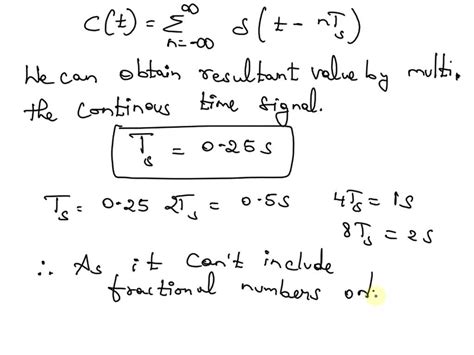 C(t) = ∞ Σ n=-∞ δ(t - nTs)
We can obtain resultant value by multi.
the continous time signal.
Ts = 0.25s
Ts = 0.25 2Ts = 0.5s 4Ts = 1s
8Ts = 2s
∴ As it can't include
fractional numbers